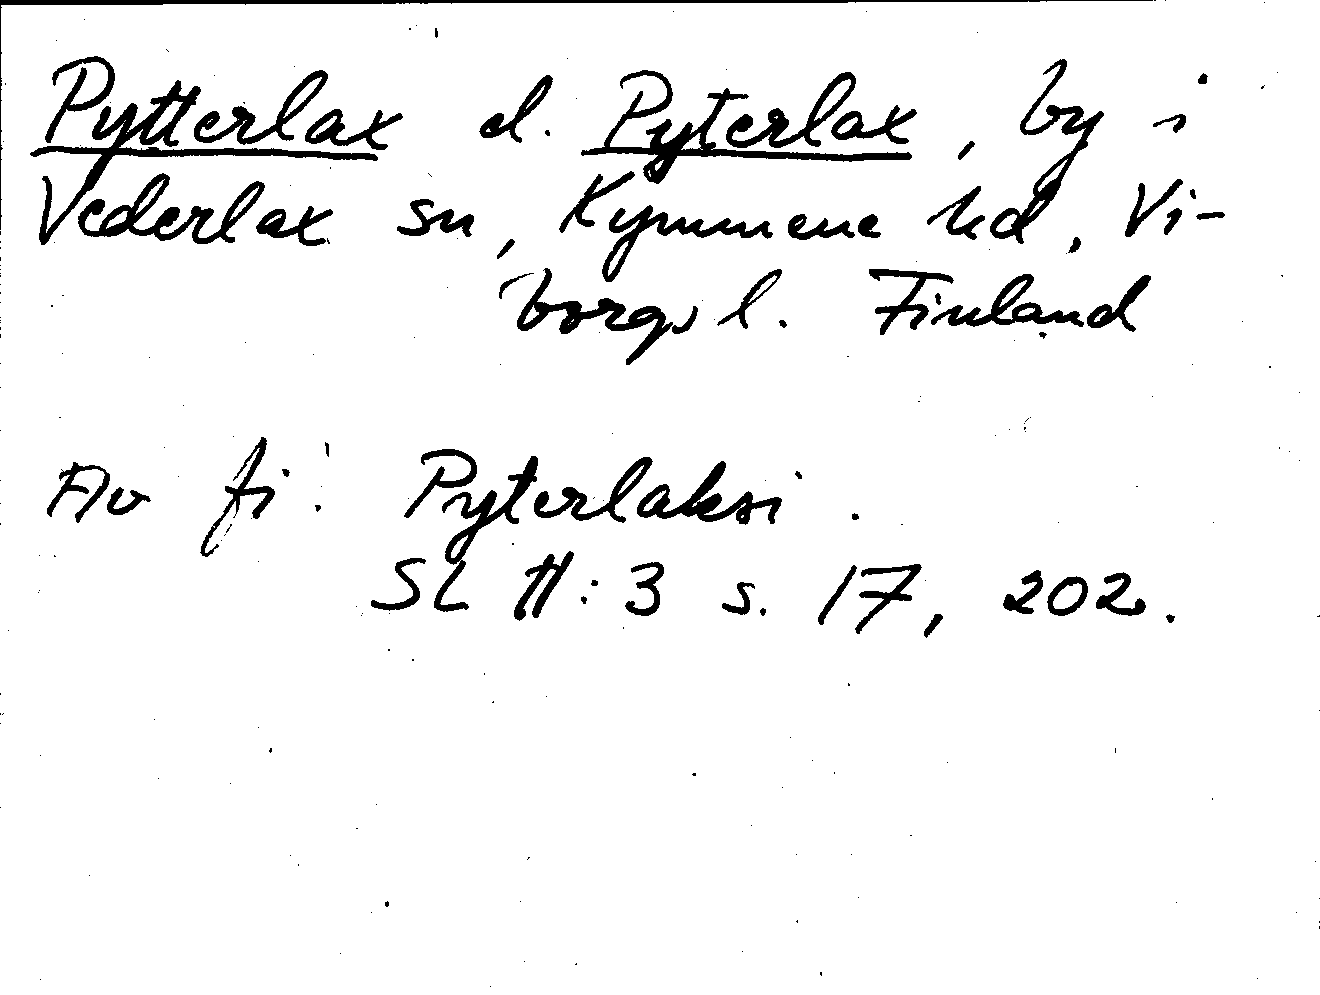 Pytterlax el. Pyterlax, by i
Vederlax sn, Kymmene hd, Vi-
borgs l. Finland
Av fi. Pyterlaksi.
SL II:3 s. 17, 202.